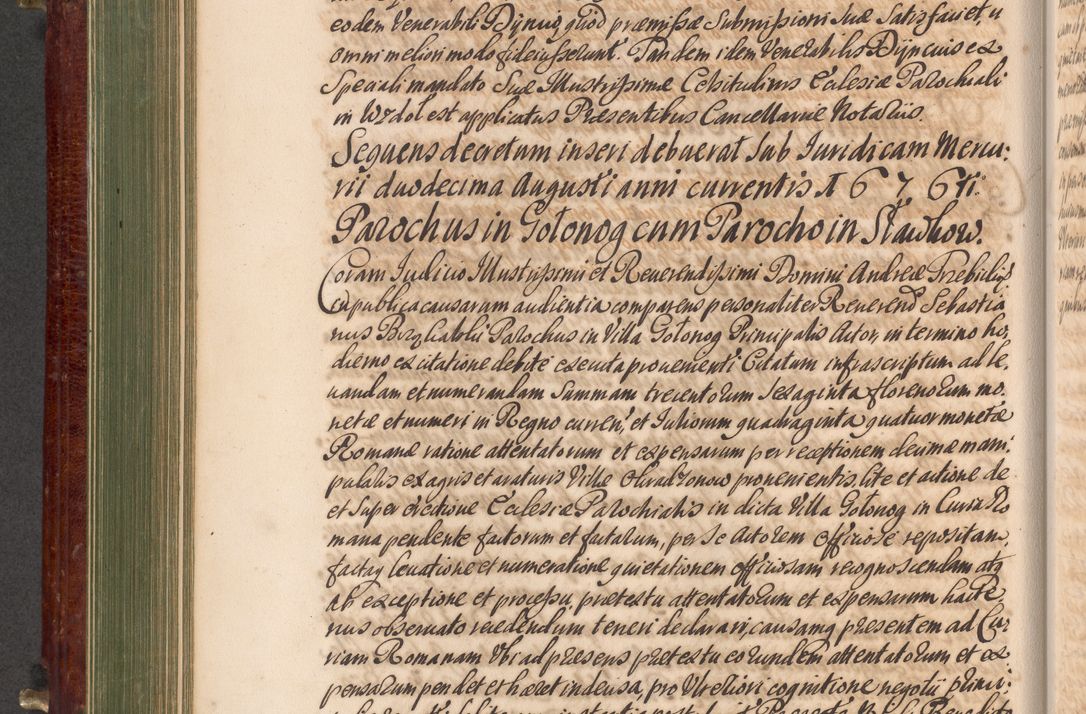 eodem Venerabili Dijnuis, quod præmissæ Submissioni Suæ Satisfaciet, u
omni meliori modo fideiusserunt. Tandem idem Venerabilis Dijncuis ex
Speciali mandato Suæ Illustrissimæ Celsitudinis Ecclesiæ Parochiali
in Wrdol est applicatus Præsentibus Cancellariæ Notariis.
Sequens decretum inseri debuerat Sub Juridicam Mercu:
rii duodecima Augusti anni currentis 1676ti.
Parochus in Gołonog cum Parocho in Sławkow.
Coram Judicio Illustrissimi et Reverendissimi Domini Andreæ Trzebicky
in publica causarum audientia comparens personaliter Reverend Sebastia
nus Parochus in Villa Gołonog Principalis Actor, in termino ho,
dierno ex citatione debite executa provenienti Citatum infrascriptum ad le,
vandam et numerandam Summam trecentorum Sexaginta florenorum mo.
netæ et numeri in Regno curren, et Juliorum quadraginta quatuor monetæ
Romanæ ratione attentatorum et expensarum per receptionem decimæ mani,
pularis ex agris et araturis Villæ provenientis, lite et actione de
et Super erectione Ecclesiæ Parochialis in dicta Villa Gołonog in Curia Ro
mana pendente factorum et factarum, per Se Actorem officiose repositam,
factaq levatione et numeratione quietationem officiosam recognoscendam atq
ab exceptione et processu, prætextu attentatorum et expensarum hacte
nus observato recedendum teneri declarari, causamq præsentem ad Cu,
riam Romanam Ubi ad præsens prætextu eorundem attentatorum et ex
pensarum pendet et hæret indecisa, pro Ulteriori cognitione negotii princi: